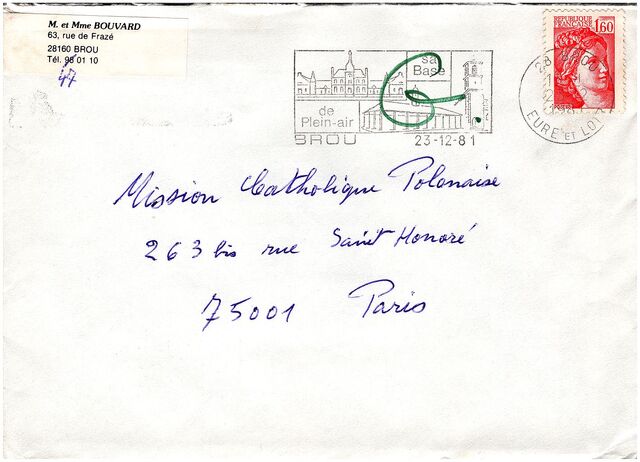 M. et Mme BOUVARD
63, rue de Frazé
28160 BROU
Tél. 98 01 10
47
sa
Base
de
Plein-air
BROU
23-12-81
REPUBLIQUE
FRANCAISE 1,60
EURE ET LOIR
Mission Catholique Polonaise
263 bis rue Saint Honoré
75001 Paris